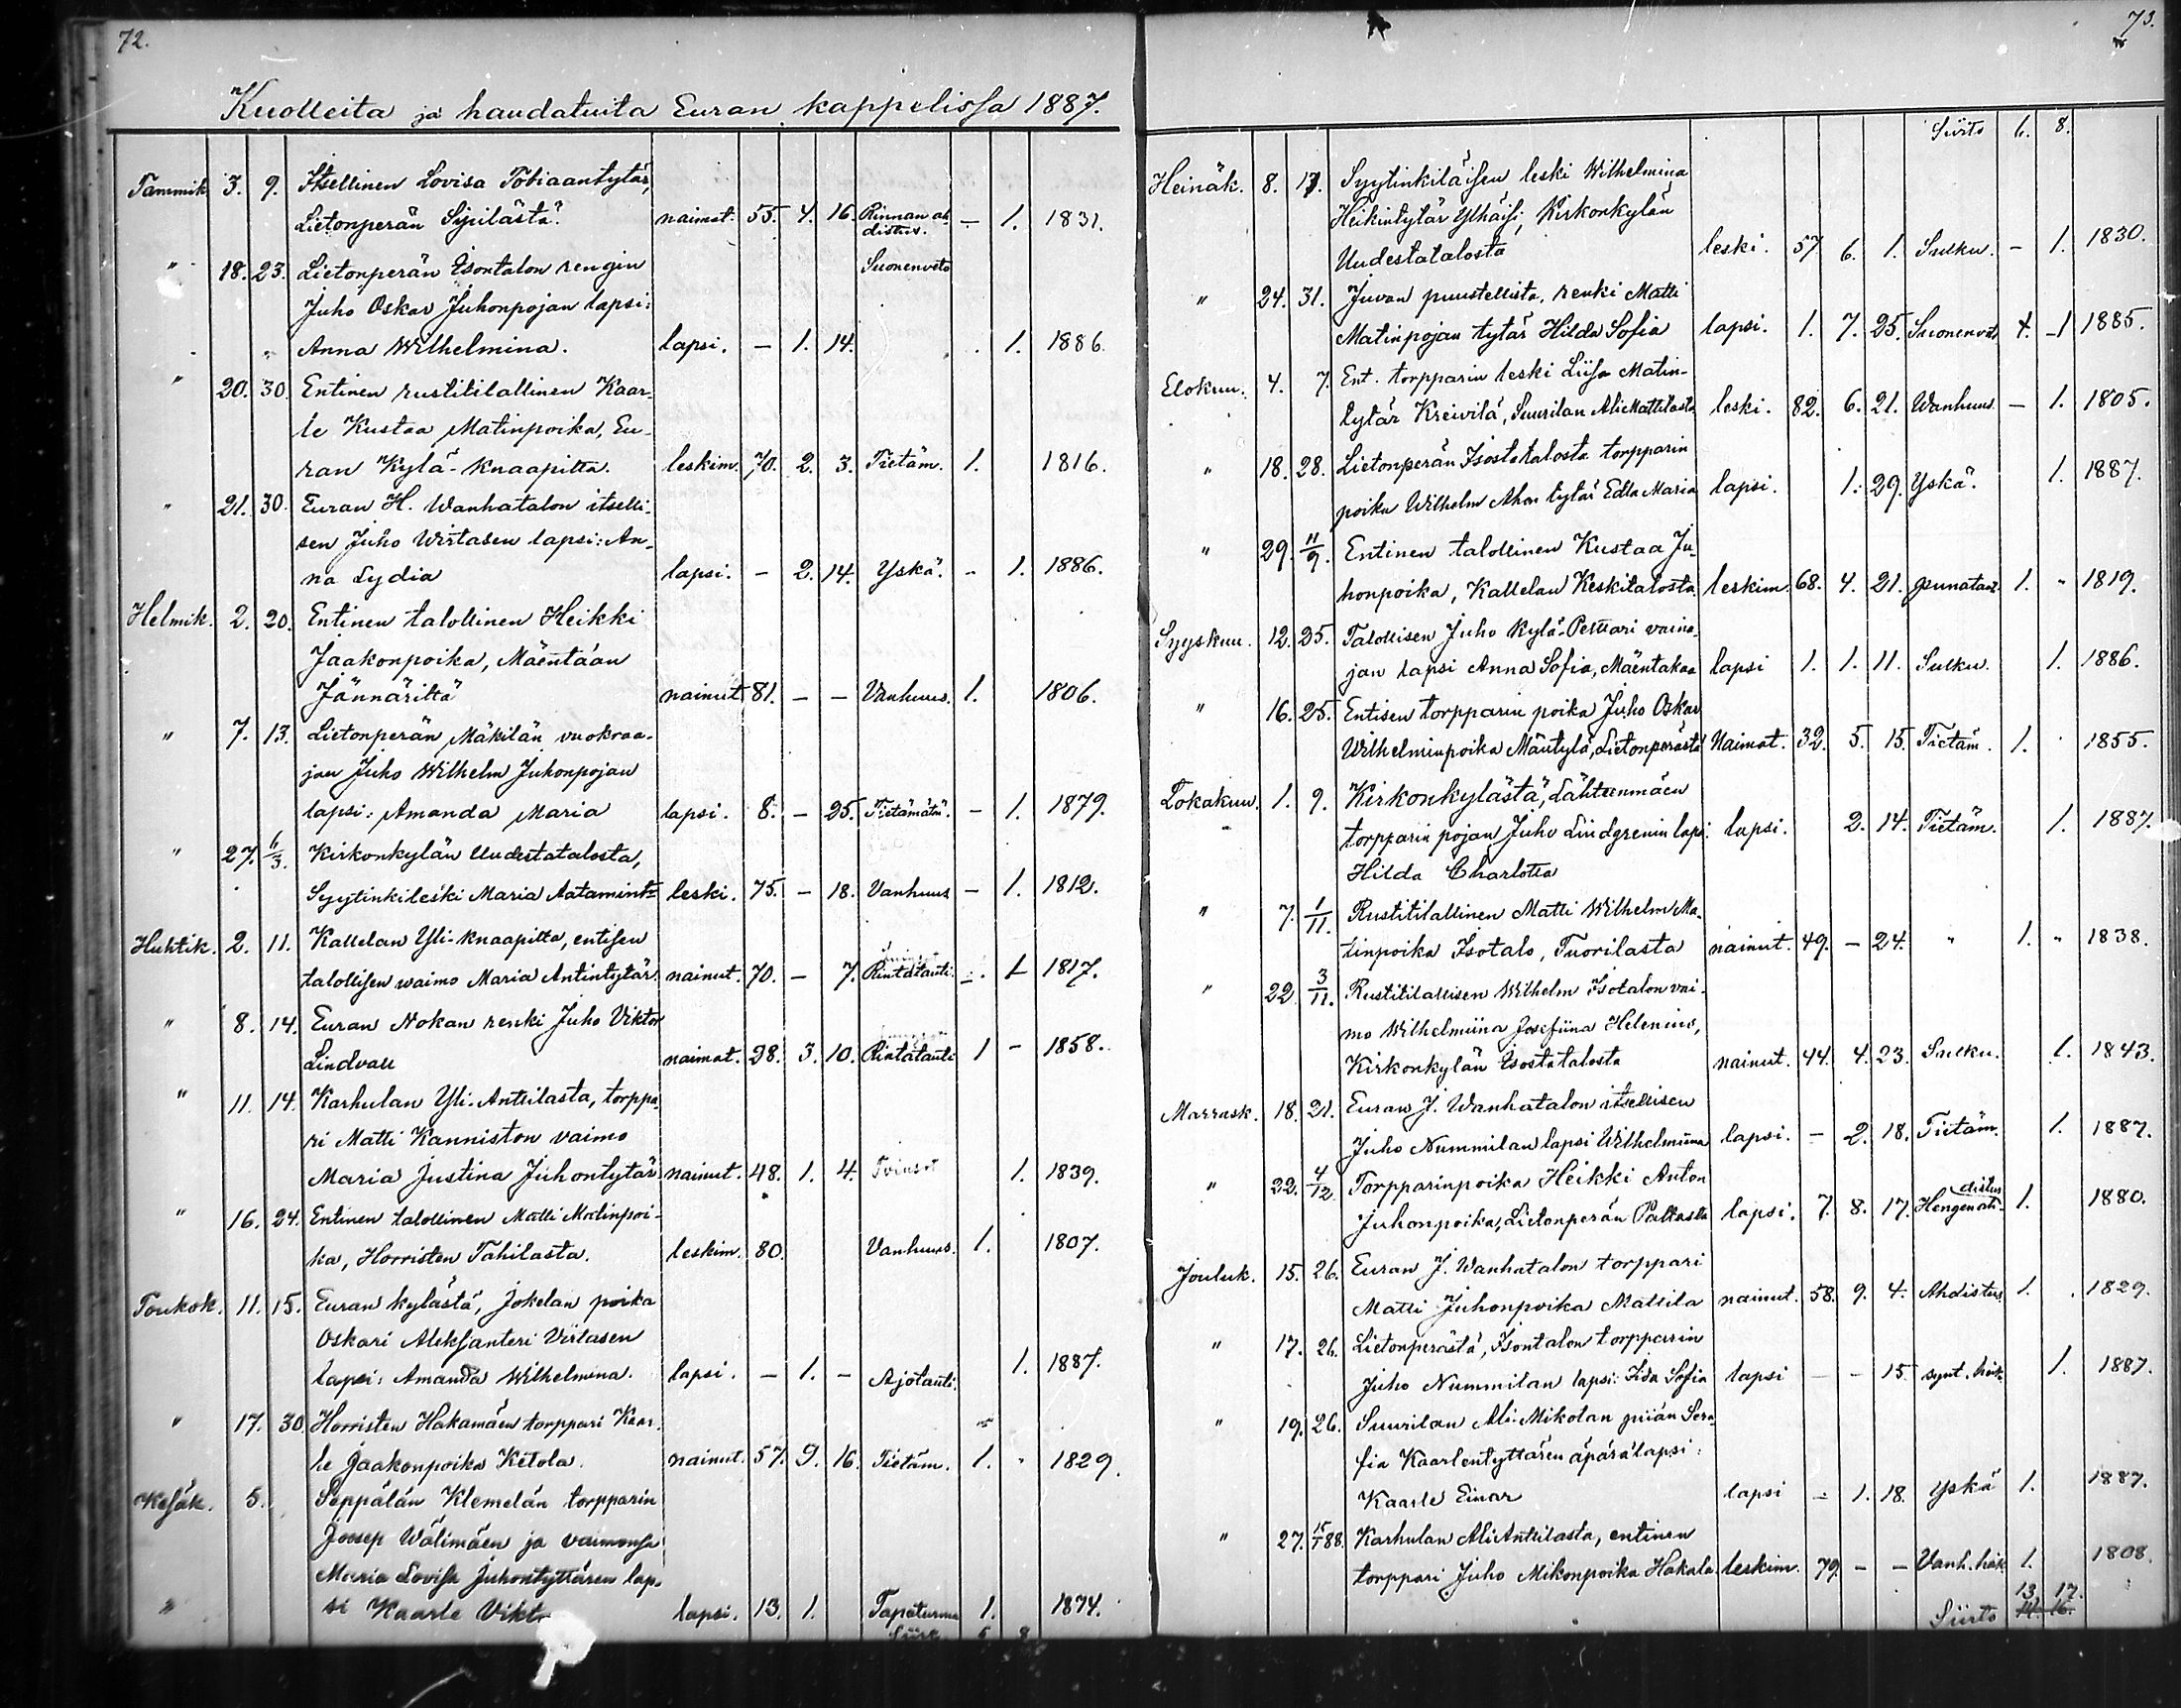 72.
Kuolleita ja haudatuita Euran kappelissa 1887.
Tammik. 3. 9. Itsellinen Lovisa Tobiaantytär,
Lietonperän Sipilästä. naimat. 55. 4. 16. Rinnan ah- — 1. 1831.
distus.
" 18. 23. Lietonperän Isontalon rengin Suonenveto
Juho Oskar Juhonpojan lapsi:
Anna Wilhelmina. lapsi. — 1. 14. 1. 1886.
" 20. 30. Entinen rustitilallinen Kaar-
le Kustaa Matinpoika, Eu-
ran Kylä-Knaapilta. leskim. 70. 2. 3. Tietäm. 1. 1816.
" 21. 30. Euran H. Wanhatalon itselli-
sen Juho Wirtasen lapsi: An-
na Lydia lapsi. — 2. 14. Yskä. - 1. 1886.
Helmik. 2. 20. Entinen talollinen Heikki
Jaakonpoika, Mäentaan
Jännäriltä nainut 81. — — Vanhuus. 1. 1806.
" 7. 13. Lietonperän Mäkilän vuokraa-
jan Juho Wilhelm Juhonpojan
lapsi: Amanda Maria lapsi. 8. — 25. Tietämätä. — 1. 1879.
" 27. 6/3. Kirkonkylän Uudestatalosta,
Syytinkileski Maria Aatamint: leski. 75. — 18. Vanhuus — 1. 1812.
Huhtik. 2. 11. Kallelan Yli-Knaapilta, entisen
talollisen waimo Maria Antintytär. nainut. 70. — 7. Rintatauti. — 1 1817.
" 8. 14. Euran Nokan renki Juho Viktor
Lindvall naimat. 28. 3. 10. Rintatauti 1 - 1858.
" 11. 14. Karhulan Yli-Anttilasta, torppa-
ri Matti Kanniston vaimo
Maria Justina Juhontytär nainut. 48. 1. 4. 1. 1839.
" 16. 24. Entinen talollinen Matti Matinpoi-
ka, Horristen Tahilasta. leskim. 80. Vanhuus. 1. 1807.
Toukok. 11. 15. Euran kylästä, Jokelan poika
Oskari Aleksanteri Virtasen
lapsi: Amanda Wilhelmina. lapsi. — 1. — Ajotauti. 1. 1887.
" 17. 30 Horristen Hakamäen torppari Kaar-
le Jaakonpoika Ketola. nainut. 57. 9. 16. Tietäm. 1. 1829.
Kesäk. 5. Seppälän Klemelän torpparin
Joosep Wälimäen ja vaimonsa
Maria Lovisa Juhontyttären lap-
" si Kaarle Vikt lapsi. 13. 1. Tapaturma 1. 1874.
73.
Siirto 6. 8.
Heinäk. 8. 17. Syytinkiläisen leski Wilhelmina
Heikintytär Ylhäisi, Kirkonkylän
Uudestatalosta leski. 57 6. 1. Sulku. - 1. 1830.
" 24. 31. Juvan puustellista, renki Matti
Matinpojan tytär Hilda Sofia lapsi. 1. 7. 25. Suonenvet. 1. -1 1885.
Elokuu. 4. 7. Ent. torpparin leski Liisa Matin-
tytär Kreivilä, Suurilan AliMattilasta leski. 82. 6. 21. Wanhuus. — 1. 1805.
" 18. 28. Lietonperän Isostatalosta torpparin
poika Wilhelm Ahon tytär Edla Maria lapsi. 1. 29. Yskä. 1. 1887.
" 29. 11/9. Entinen talollinen Kustaa Ju-
honpoika, Kallelan Keskitalosta leskim. 68. 4. 21. punataut. 1. - 1819.
Syyskuu. 12. 25. Talollisen Juho Kylä-Pettari vaina-
jan lapsi Anna Sofia, Mäentakaa lapsi 1. 1. 11. Sulku. 1. 1886.
" 16. 25. Entisen torpparin poika Juho Oskar
Wilhelminpoika Mäntylä, Lietonperästä Naimat. 32. 5. 15. Tietäm. 1. 1855.
Lokakuu. 1. 9. Kirkonkylästä, Lähteenmäen
torpparin pojan Juho Lindgrenin lapsi: lapsi. 2. 14. Tietäm. 1. 1887.
Hilda Charlotta
" 7. 1/11. Rustitilallinen Matti Wilhelm Ma-
tinpoika Isotalo, Tuorilasta nainut. 49. — 24. " 1. " 1838.
" 22. 3/11. Rustitilallisen Wilhelm Isotalon vai-
mo Wilhelmiina Josefiina Helenius,
Kirkonkylän Isostatalosta nainut. 44. 4. 23. Sulku. 1. 1843.
Marrask. 18. 21. Euran J. Wanhatalon itsellisen
Juho Nummilan lapsi Wilhelmiina lapsi. — 2. 18. Tietäm. 1. 1887.
" 22. 4/12 Torpparinpoika Heikki Anton
Juhonpoika, Lietonperän Paltasta lapsi. 7. 8. 17. Hengenah-distus 1. 1880.
Jouluk. 15. 26. Euran J. Wanhatalon torppari
Matti Juhonpoika Mattila nainut. 58. 9. 4. Ahdistus 1. 1829.
" 17. 26. Lietonperästä, Isontalon torpparin
Juho Nummilan lapsi: Iida Sofia lapsi — — 15. synt. heik. 1. 1887.
" 19. 26. Suurilan Ali-Mikolan piian Sera-
fia Kaarlentyttären äpärälapsi:
Kaarle Einar lapsi — 1. 18. Yskä 1. 1887.
" 27. 15/1 88. Karhulan AliAnttilasta, entinen
torppari Juho Mikonpoika Hakala. leskim. 79. — — Vanh. heik. 1. 1808.
13. 17.
Siirto 14. 16.